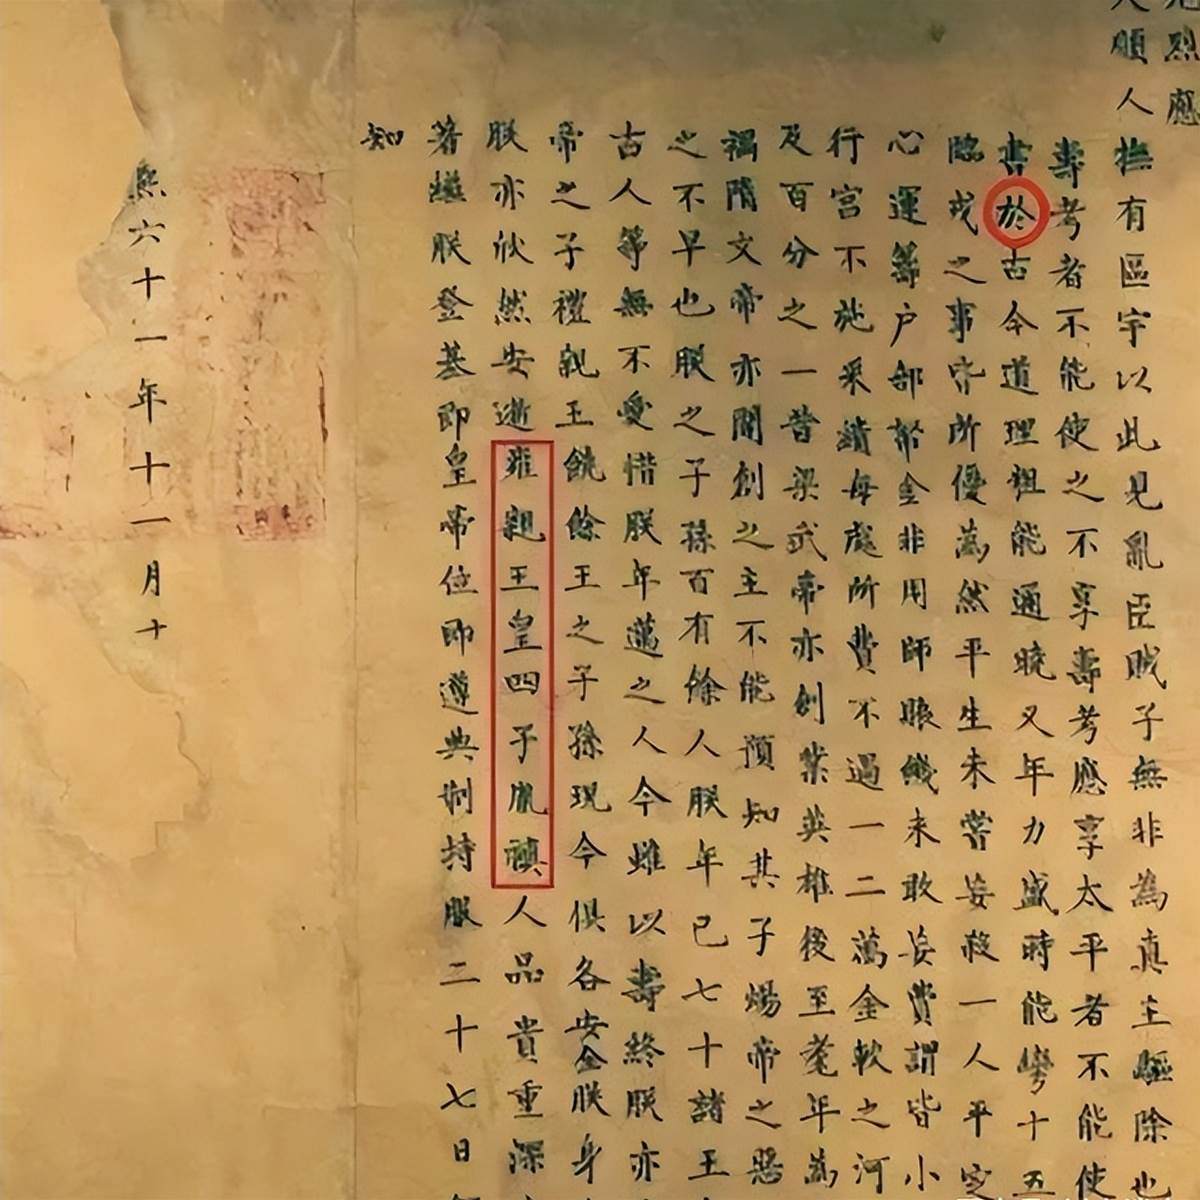 烈應
順人
撫有區宇以此見亂臣賊子無非為真主驅除也
壽考者不能使之不享壽考應享太平者不能使
書於古今道理粗能通曉又年力盛時能彎十五
臨戎之事皆所優為然平生未嘗妄殺一人平定
心運籌户部帑金非用師賑饑未敢妄費謂皆小
行宮不施采繢每處所費不過一二萬金較之河
及百分之一昔梁武帝亦創業英雄後至耄年為
禍隋文帝亦開創之主不能預知其子煬帝之惡
之不早也朕之子孫百有餘人朕年已七十諸王
古人等無不愛惜朕年邁之人今雖以壽終朕亦
帝之子禮親王饒餘王之子孫現今俱各安全朕身
朕亦欣然安逝雍親王皇四子胤禛人品貴重深
著繼朕登基即皇帝位即遵典制持服二十七日
知
熙六十一年十一月十